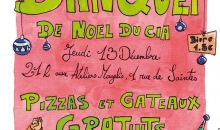 BANQUET
DE NOEL DU CIA
Jeudi 13 Décembre
21h aux Ateliers Magelis, 1 rue de Saintes
PIZZAS ET GATEAUX
GRATUITS
Bière
1.5€